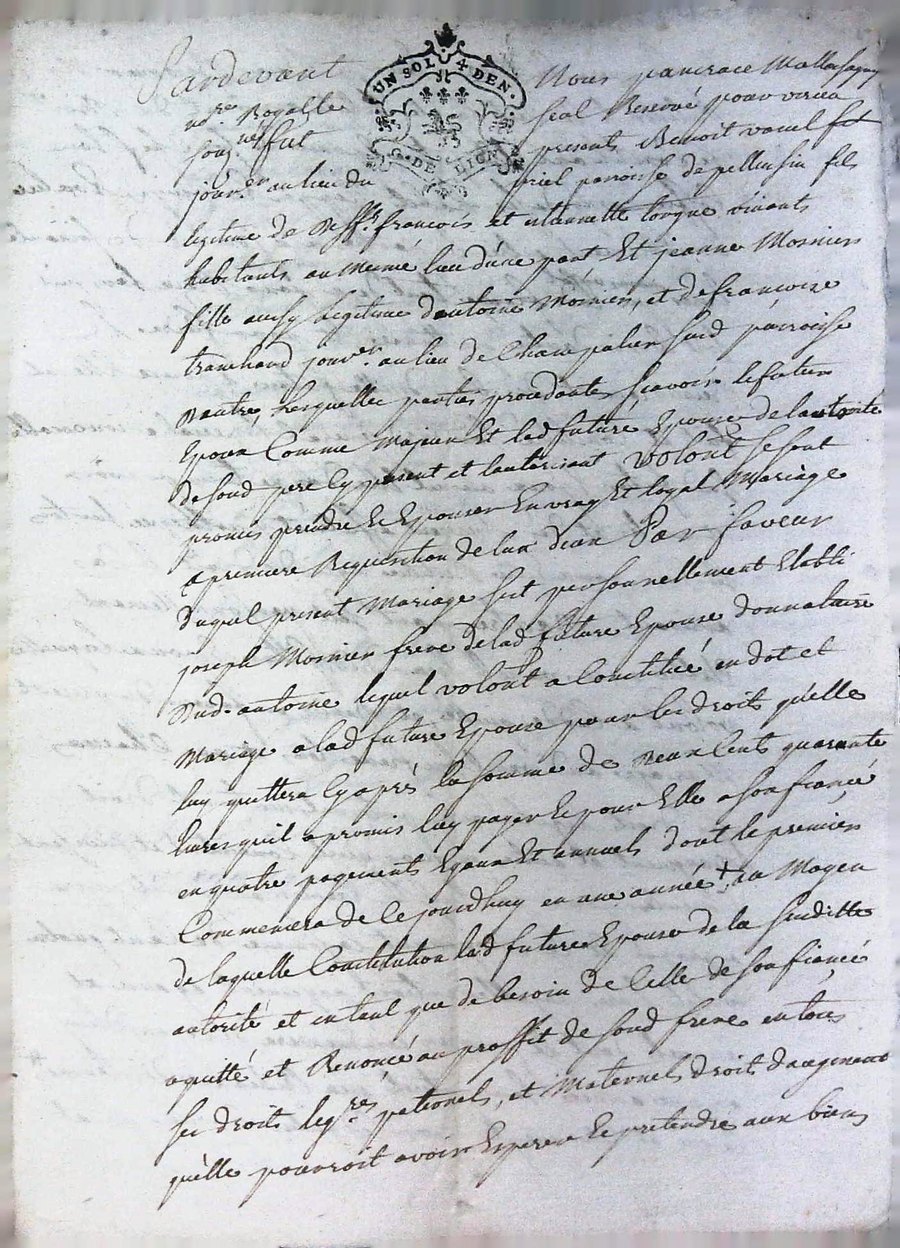 Pardevant Nous pancrace
UN SOL 4 DEN.
G. DE LION
nore Royalle seal Renové pour virieu
sougné fut presents Benoit vouel fit
jourer au lieu du priel parroisse de pellussin fils
legitime de deff francois et vivants
habitants au meme lieu d'une part Et jeanne Mornier
fille aussy legitime d'antoine Mornier, et de francoise
tranchand jourer au lieu de Champalier susd parroisse
D'autre, Lesquelles parties procedantes scavoir le futur
Epoux Comme Majeur Et lad future Epouse de l'autorité
de sond pere Cy present et l'autorisant volont se sont
promis prendre Et Epouser En vray Et loyal Mariage
a premiere Requisition de l'un d'eux Par faveur
duquel present Mariage s'est personnellement Etabli
joseph Mornier frere de lad future Epouse donnataire
dud. antoine lequel volont a Constitué en dot et
Mariage a lad future Epouse pour les droits qu'elle
luy quittera Cy après la somme de Deux Cents quarante
livres qu'il a promis luy payer Et pour Elle a son fiancé
en quatre payements Egaux Et annuels dont le premier
Commencera de Ce jourdhuy en une année + au Moyen
de laquelle Constitution lad future Epouse de la suditte
autorité et en tant que de besoin de Celle de son fiancé
a quitté et Renoncé au proffit de sond frere en tous
ses droits legres paternels, et Maternels droit d'augment
qu'elle pourroit avoir Esperer Et pretendre aux biens